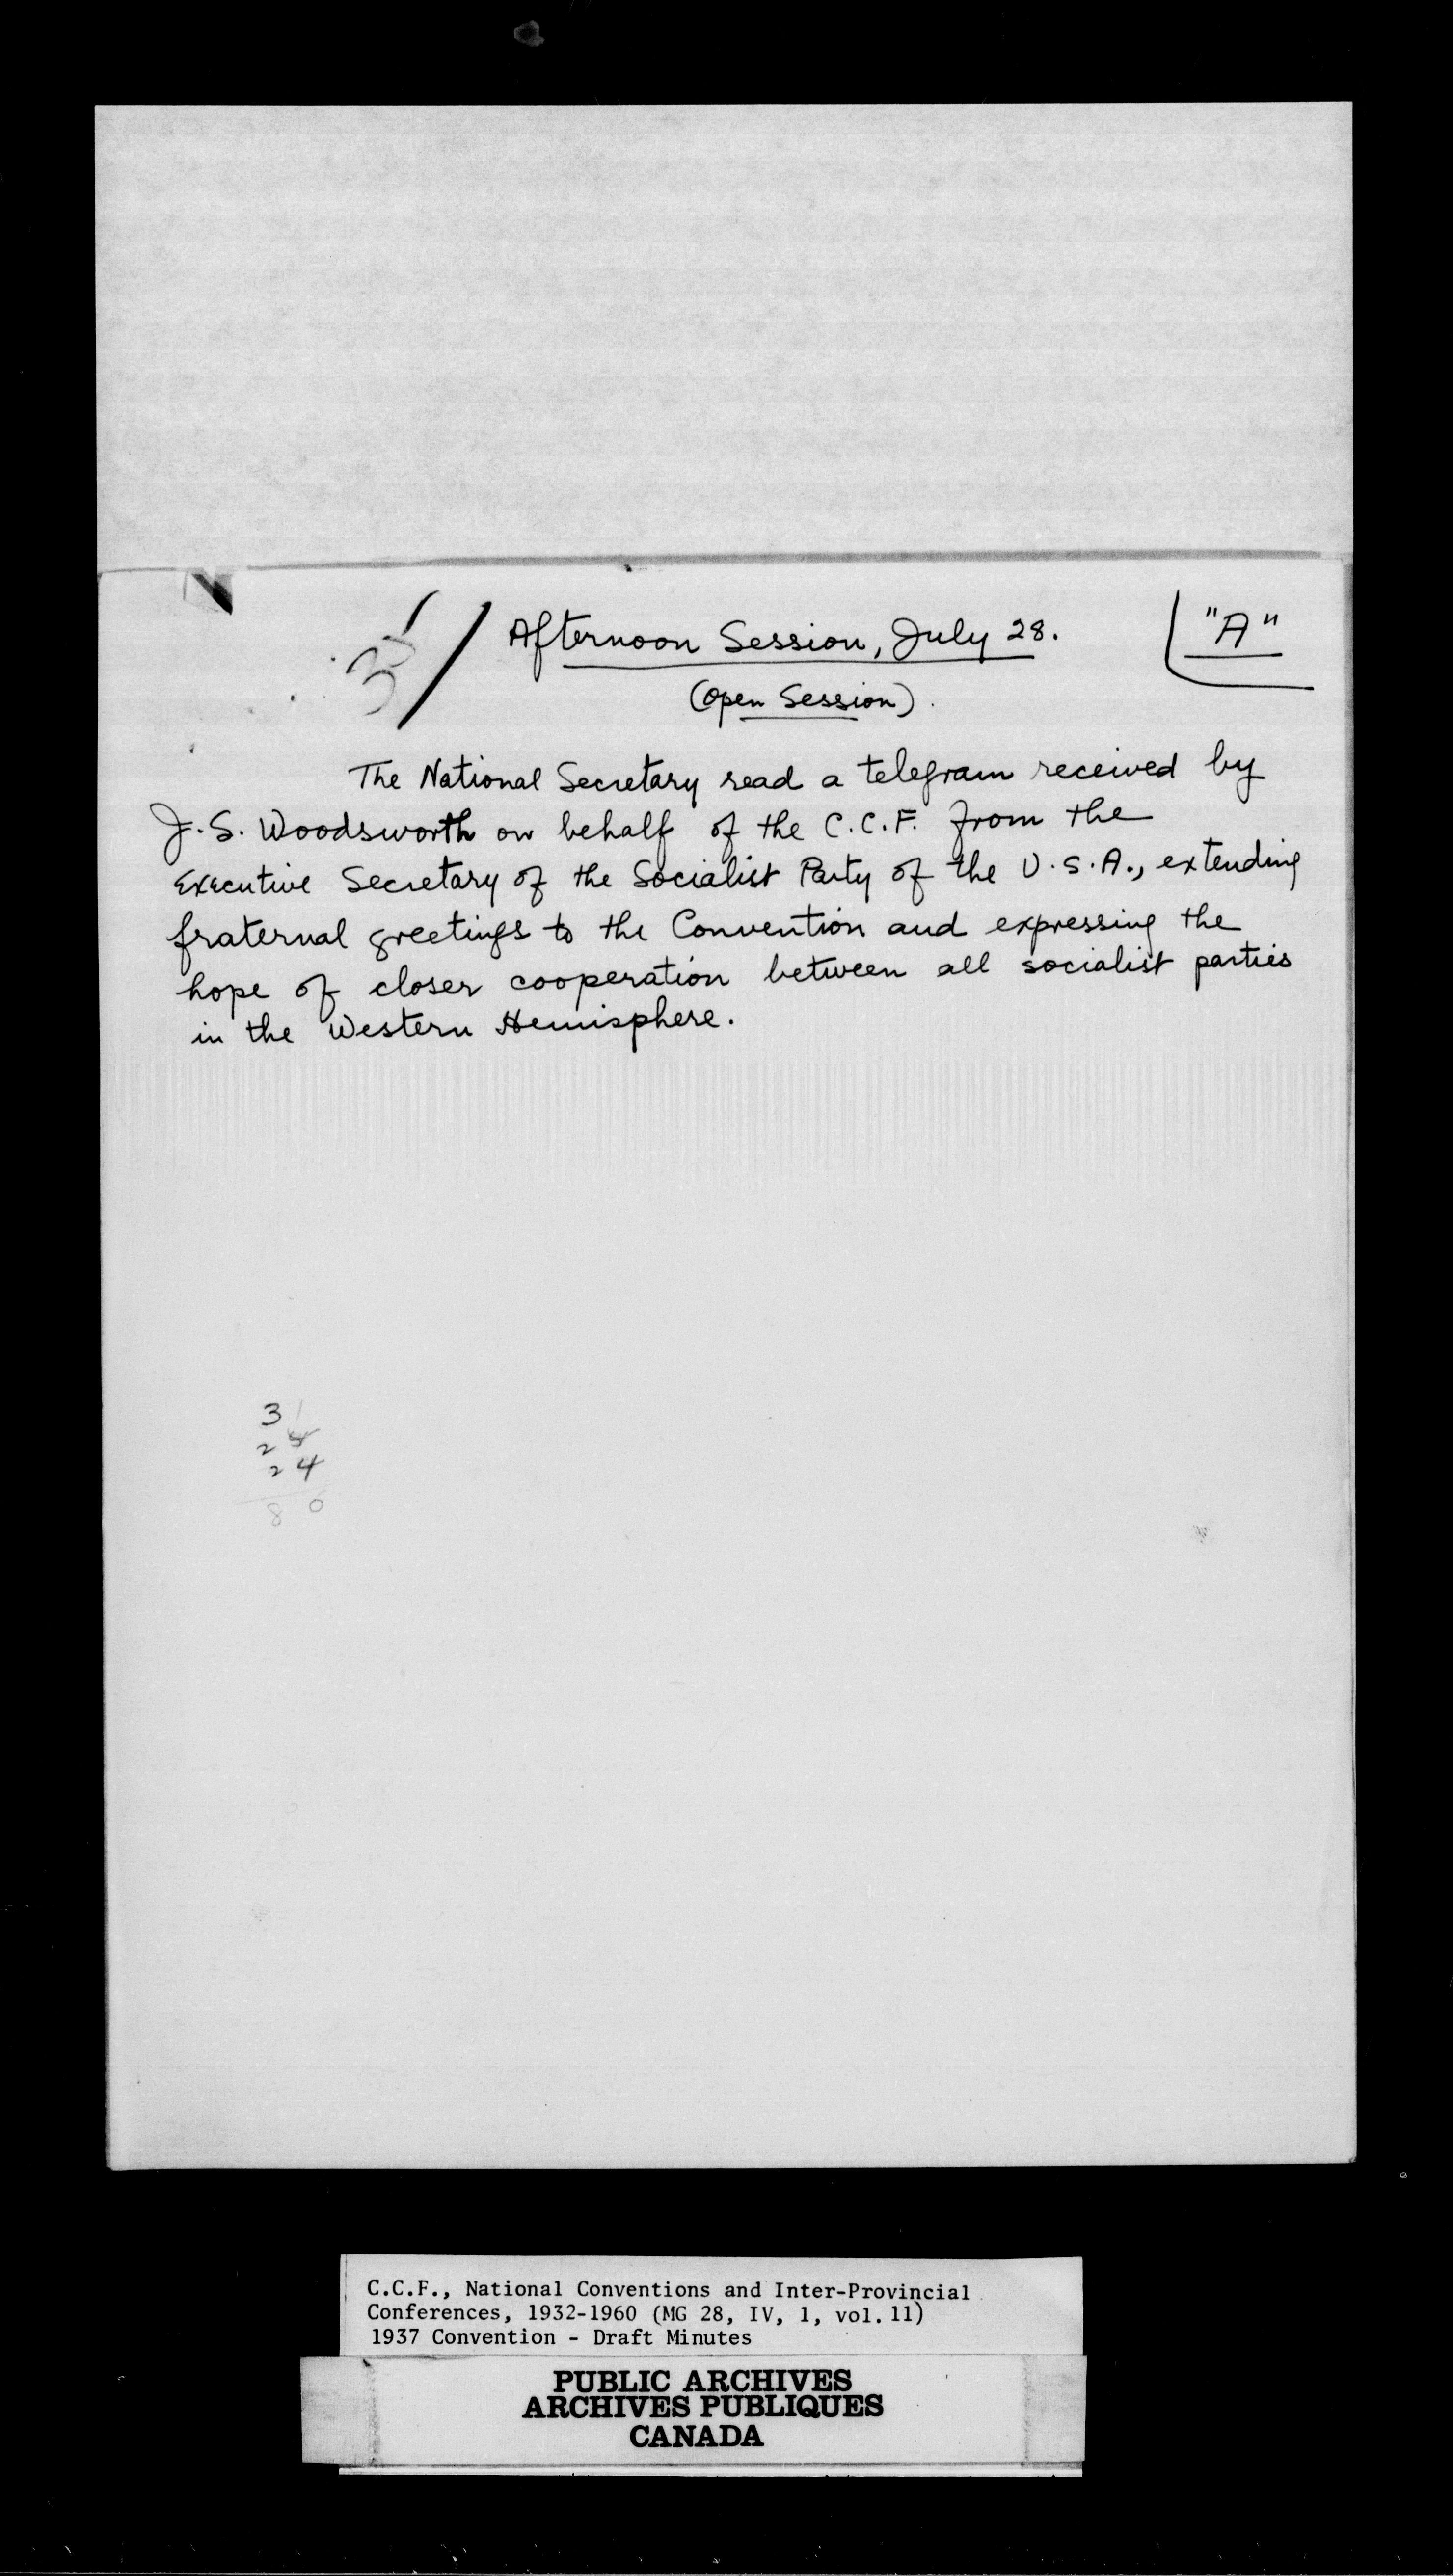 Afternoon Session, July 28.
"A"
(Open Session).
The National Secretary read a telegram received by
J. S. Woodsworth on behalf of the C.C.F. from the
Executive Secretary of the Socialist Party of the U.S.A., extending
fraternal greetings to the Convention and expressing the
hope of closer cooperation between all socialist parties
in the Western Hemisphere.
3
2
24
80
C.C.F., National Conventions and Inter-Provincial
Conferences, 1932-1960 (MG 28, IV, 1, vol. 11)
1937 Convention - Draft Minutes
PUBLIC ARCHIVES
ARCHIVES PUBLIQUES
CANADA